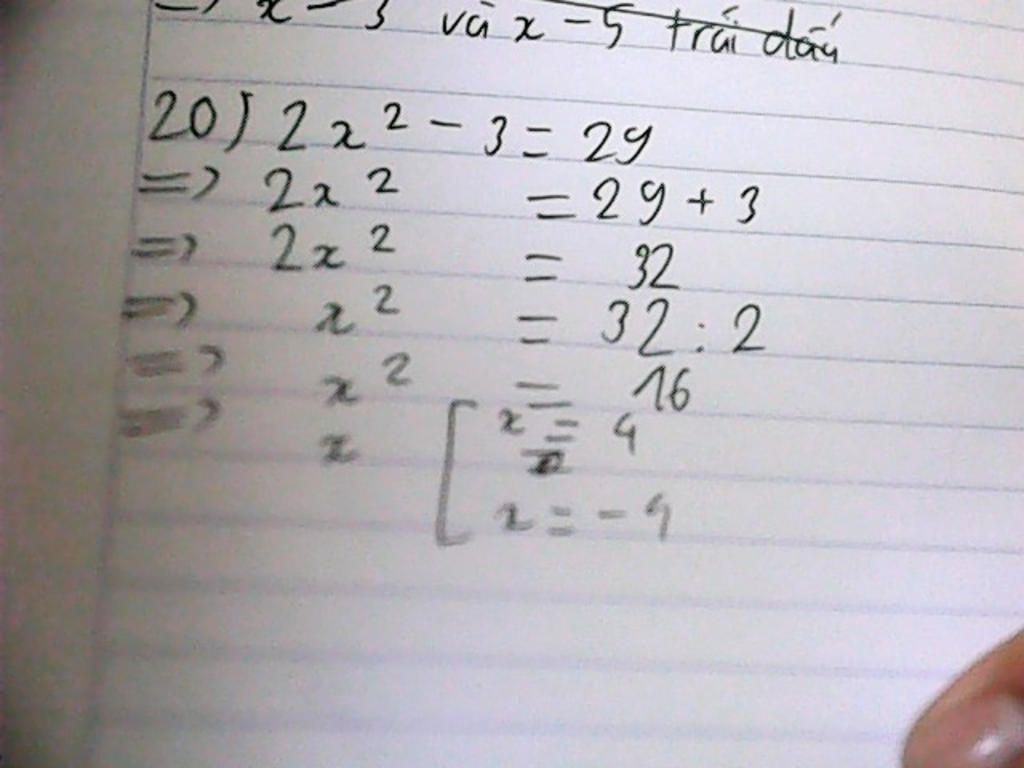 => x - 3 và x - 5 trái dấu
20) 2x² - 3 = 29
=> 2x² = 29 + 3
=> 2x² = 32
=> x² = 32 : 2
=> x² = 16
=> x [ x = 4
x = -4